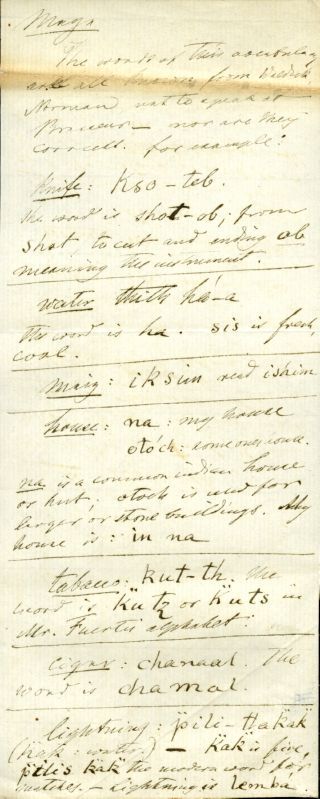 Maya
The words of this vocabulary
are all known from
Norman, not to speak of
Brasseur — nor are they
correct. for example:
Knife: Kso-teb.
the word is shot-ob; from
shot, to cut and ending ob
meaning the instrument.
water thith há-a
the word is ha. sis is fresh,
cool.
Maiz: iksim read ishim
house: na: my house
otóch: some ones house.
na is a common indian house
or hut, otoch is used for
larger or stone buildings. My
house is: in na
tabacco: kut-th. the
word is Kutz or Kuts in
Mr. Fuertes alphabet:
cigar: chanaal. The
word is chamal.
lightning: pili-Hakak
(Hak: water.) — Kak is fire,
pilis kak the modern word for
matches. — Lightning is lemba